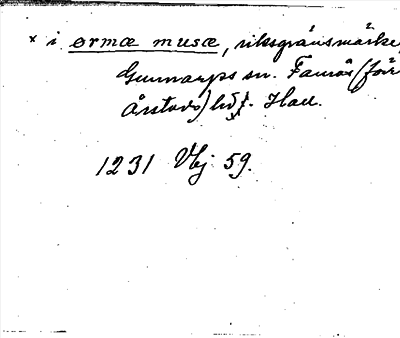 * i ormæ musæ, riksgränsmärke,
Gunnarps sn. Faurås (förr
Årstads) hd, Hall.
1231 Vbj 59.